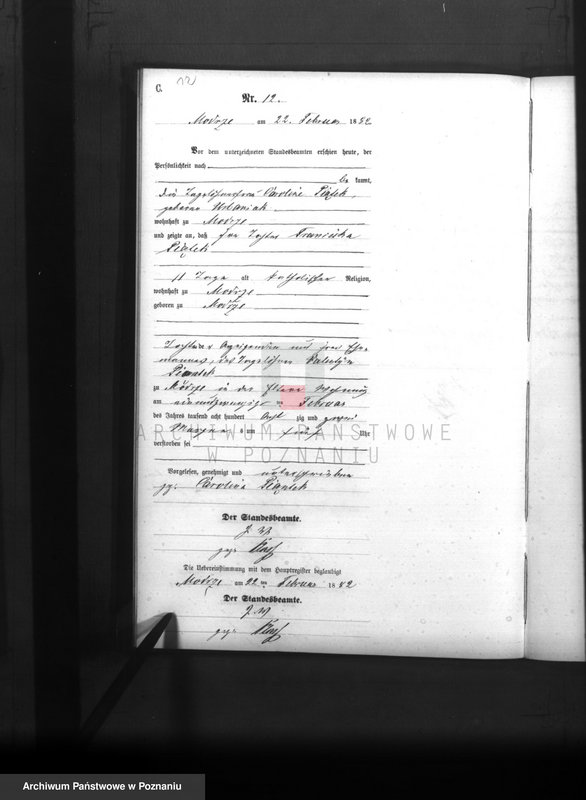 C.
12
Nr. 12.
Modrze am 22. Februar 1882
Vor dem unterzeichneten Standesbeamten erschien heute, der
Persönlichkeit nach
be kannt,
die Tagelöhnerfrau Caroline Piątek,
geborene Urbaniak
wohnhaft zu Modrze
und zeigte an, daß ihre Tochter Franciska
Piątek
11 Tage alt katholischer Religion,
wohnhaft zu Modrze
geboren zu Modrze
Tochter der Anzeigenden und ihres Ehe-
mannes, des Tagelöhner Valentyn
Piontek
zu Modrze in der Eltern Wohnung
am einundzwanzigsten Februar
des Jahres tausend acht hundert acht zig und zwei
Morgens um fünf Uhr
verstorben sei
Vorgelesen, genehmigt und unterschrieben
gez. Carolina Piątek
Der Standesbeamte.
gez.
Die Uebereinstimmung mit dem Hauptregister beglaubigt
Modrze am 22ten Februar 1882
Der Standesbeamte.
gez.
ARCHIWUM PAŃSTWOWE
W POZNANIU
Archiwum Państwowe w Poznaniu